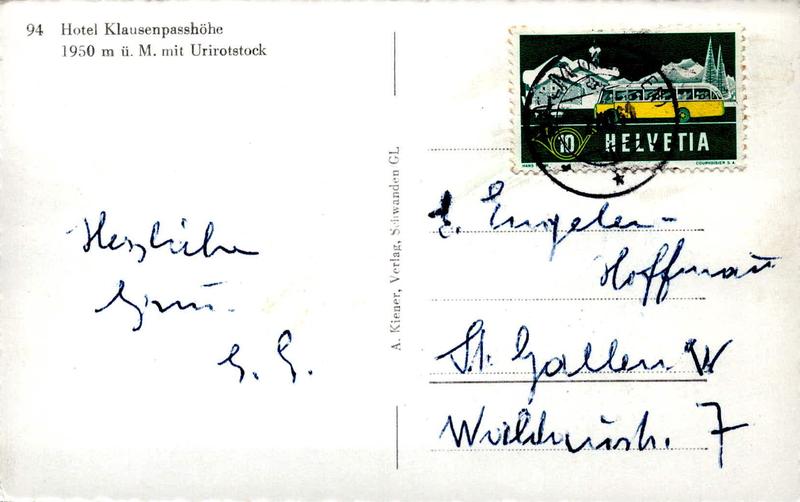 94 Hotel Klausenpasshöhe
1950 m ü. M. mit Urirotstock
A. Kiener, Verlag, Schwanden GL
10 HELVETIA
COURVOISIER S.A.
Herzliche
G. G.
E. Engeler-
Hoffmann
St. Gallen W
7